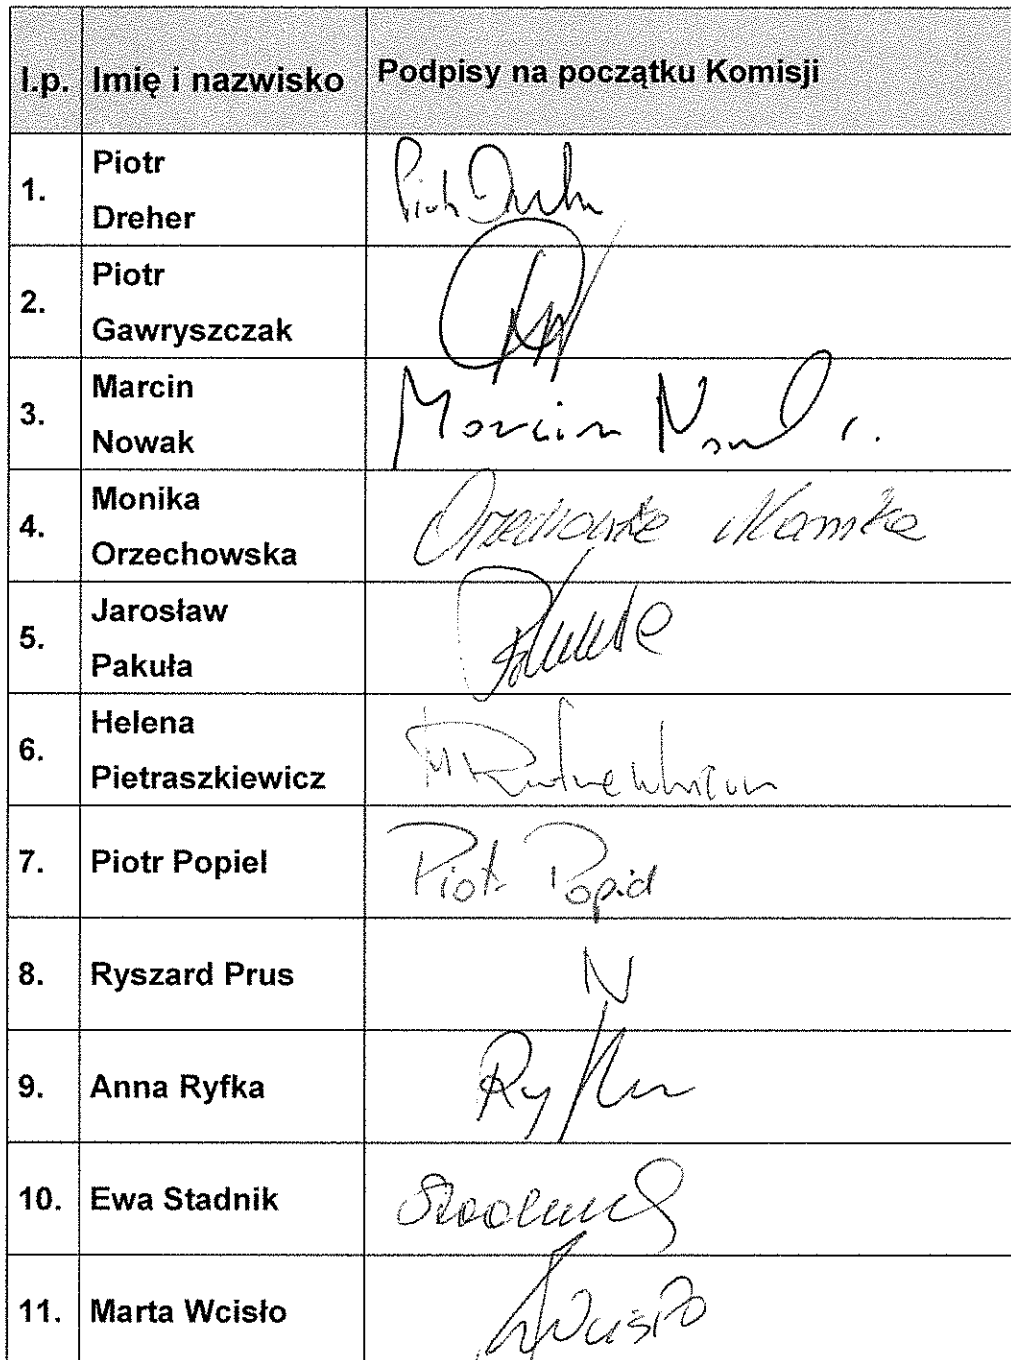 l.p. Imię i nazwisko Podpisy na początku Komisji
1. Piotr
Dreher
2. Piotr
Gawryszczak
3. Marcin
Nowak Marcin
4. Monika
Orzechowska Orzechowska Monika
5. Jarosław
Pakuła
6. Helena
Pietraszkiewicz
7. Piotr Popiel Piotr Popiel
8. Ryszard Prus N
9. Anna Ryfka Ryfka
10. Ewa Stadnik
11. Marta Wcisło Wcisło